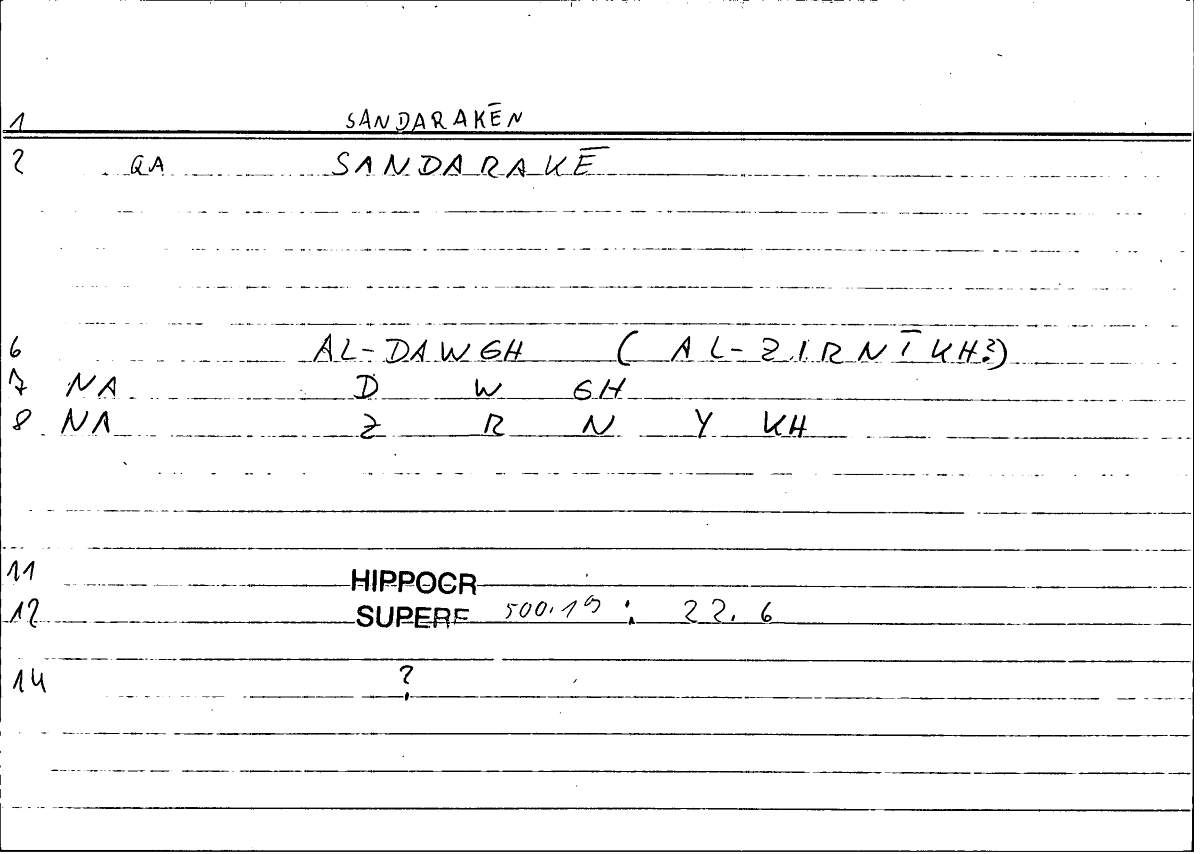 1 SANDARAKĒN
2 QA SANDARAKĒ
6 AL-DAWGH ( AL-ZIRNĪKH?)
7 NA D W GH
8 NA Z R N Y KH
11 HIPPOCR
12 SUPERF 500.19 : 22.6
14 ?